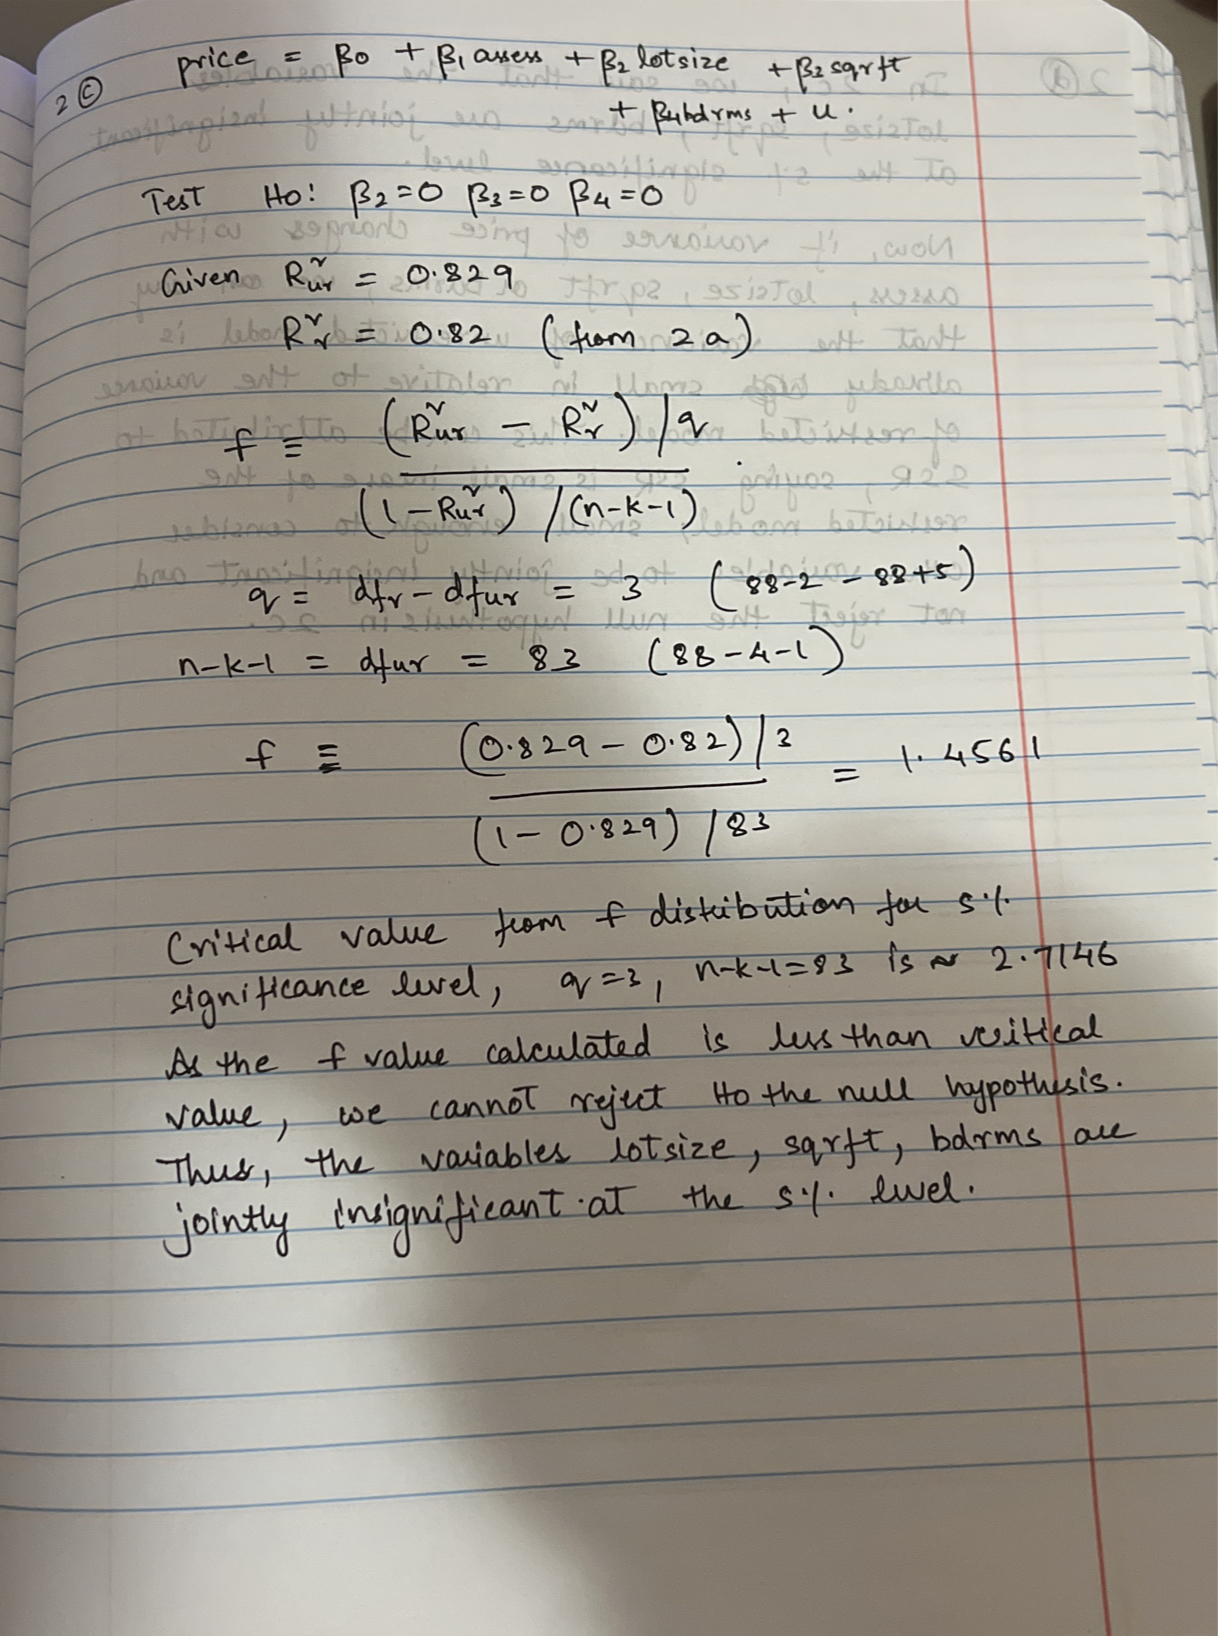 2 (c) price = β0 + β1 assess + β2 lotsize + β2 sqrft
+ β4 bdrms + u.
Test Ho: β2=0 β3=0 β4=0
Given R²ur = 0.829
R²r = 0.82 (from 2a)
f ≡ (R²ur − R²r)/q
(1 − R²ur) /(n-k-1)
q = dfr − dfur = 3 (88-2-88+5)
n-k-1 = dfur = 83 (88-4-1)
f ≡ (0.829 − 0.82)/3 = 1.4561
(1 − 0.829) /83
Critical value from f distribution for 5%
significance level, q=3, n-k-1=83 is ≈ 2.7146
As the f value calculated is less than critical
value, we cannot reject Ho the null hypothesis.
Thus, the variables lotsize, sqrft, bdrms are
jointly insignificant at the 5% level.